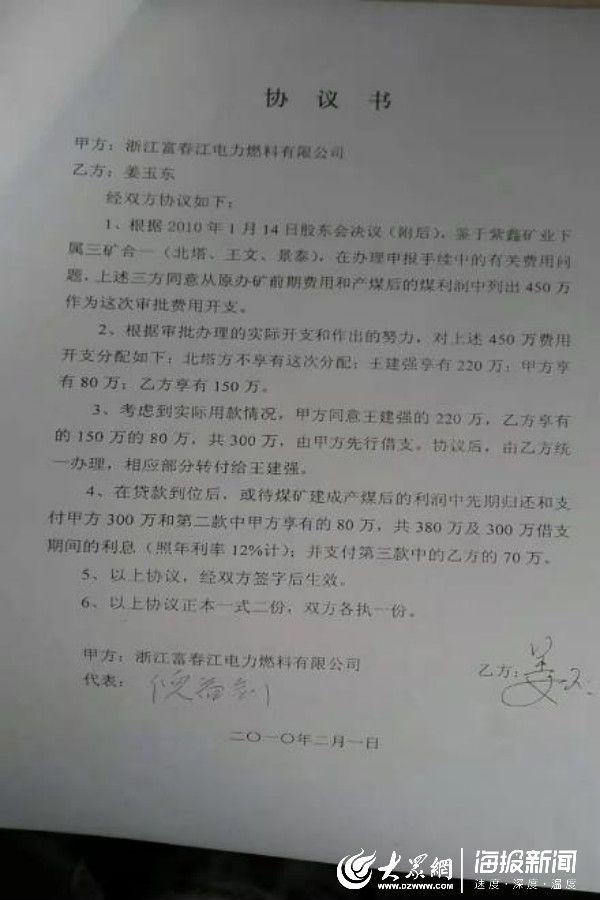 协 议 书
甲方：浙江富春江电力燃料有限公司
乙方：姜玉东
经双方协议如下：
1、根据 2010 年 1 月 14 日股东会决议（附后），鉴于紫鑫矿业下
属三矿合一（北塔、王文、景泰），在办理申报手续中的有关费用问
题，上述三方同意从原办矿前期费用和产煤后的煤利润中列出 450 万
作为这次审批费用开支。
2、根据审批办理的实际开支和作出的努力，对上述 450 万费用
开支分配如下：北塔方不享有这次分配；王建强享有 220 万；甲方享
有 80 万；乙方享有 150 万。
3、考虑到实际用款情况，甲方同意王建强的 220 万，乙方享有
的 150 万的 80 万，共 300 万，由甲方先行借支。协议后，由乙方统
一办理，相应部分转付给王建强。
4、在贷款到位后，或待煤矿建成产煤后的利润中先期归还和支
付甲方 300 万和第二款中甲方享有的 80 万，共 380 万及 300 万借支
期间的利息（照年利率 12%计）；并支付第三款中的乙方的 70 万。
5、以上协议，经双方签字后生效。
6、以上协议正本一式二份，双方各执一份。
甲方：浙江富春江电力燃料有限公司
乙方：姜
代表：
二〇一〇年二月一日
大众網 海报新闻
www.dzwww.com 速度·深度·温度